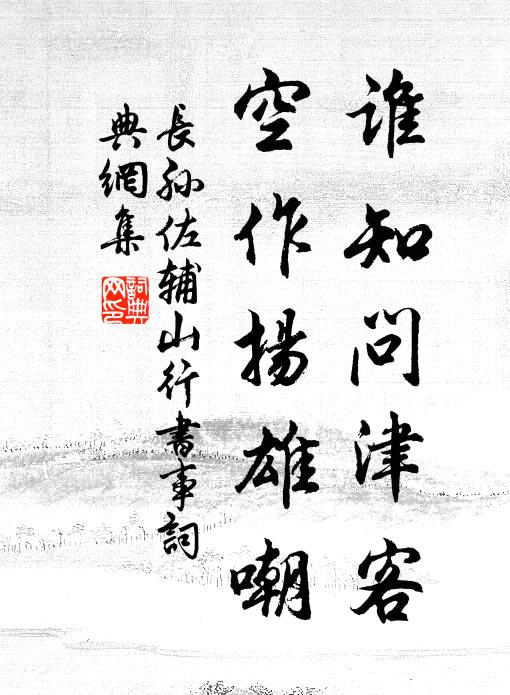 誰知問津客
空作揚雄嘲
長孫佐輔山行書事詞
典網集
詞典
网印